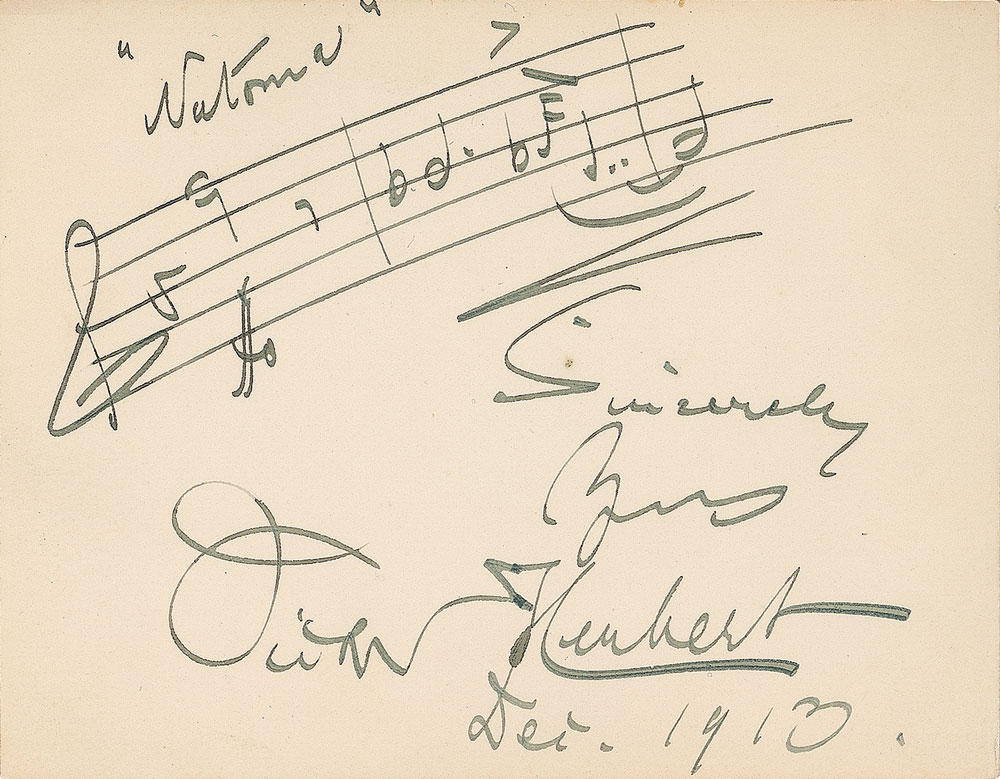 "Natoma"
Sincerely
Yours
Victor Herbert
Dec. 1913.